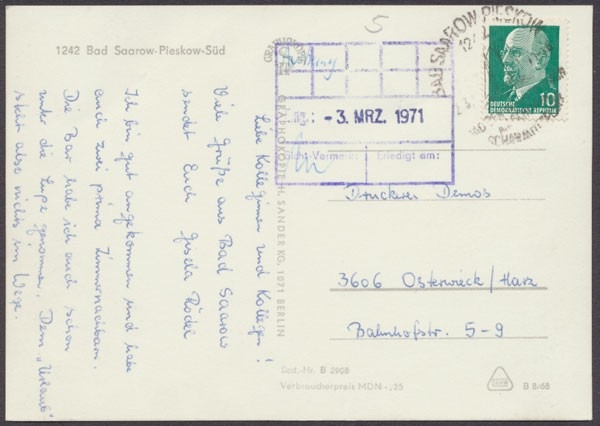 1242 Bad Saarow-Pieskow-Süd
Liebe Kolleginnen und Kollegen!
Viele Grüße aus Bad Saarow
sendet Euch Gisela Rödel
Ich bin gut angekommen und habe
auch zwei prima Zimmernachbarn.
Die Bar hab ich auch schon
unter die Lupe genommen. Dem "Urlaub"
steht also nichts im Wege.
GRAPHOKOPIE H. SANDER KG, 1071 BERLIN
5
- 3. MRZ. 1971
Erledigt am:
BAD SAAROW-PIESKOW
DEUTSCHE
DEMOKRATISCHE REPUBLIK
10
Druckerei Demos
3606 Osterwieck/Harz
Bahnhofstr. 5-9
Best.-Nr. B 2908
Verbraucherpreis MDN -,25
B 8/68